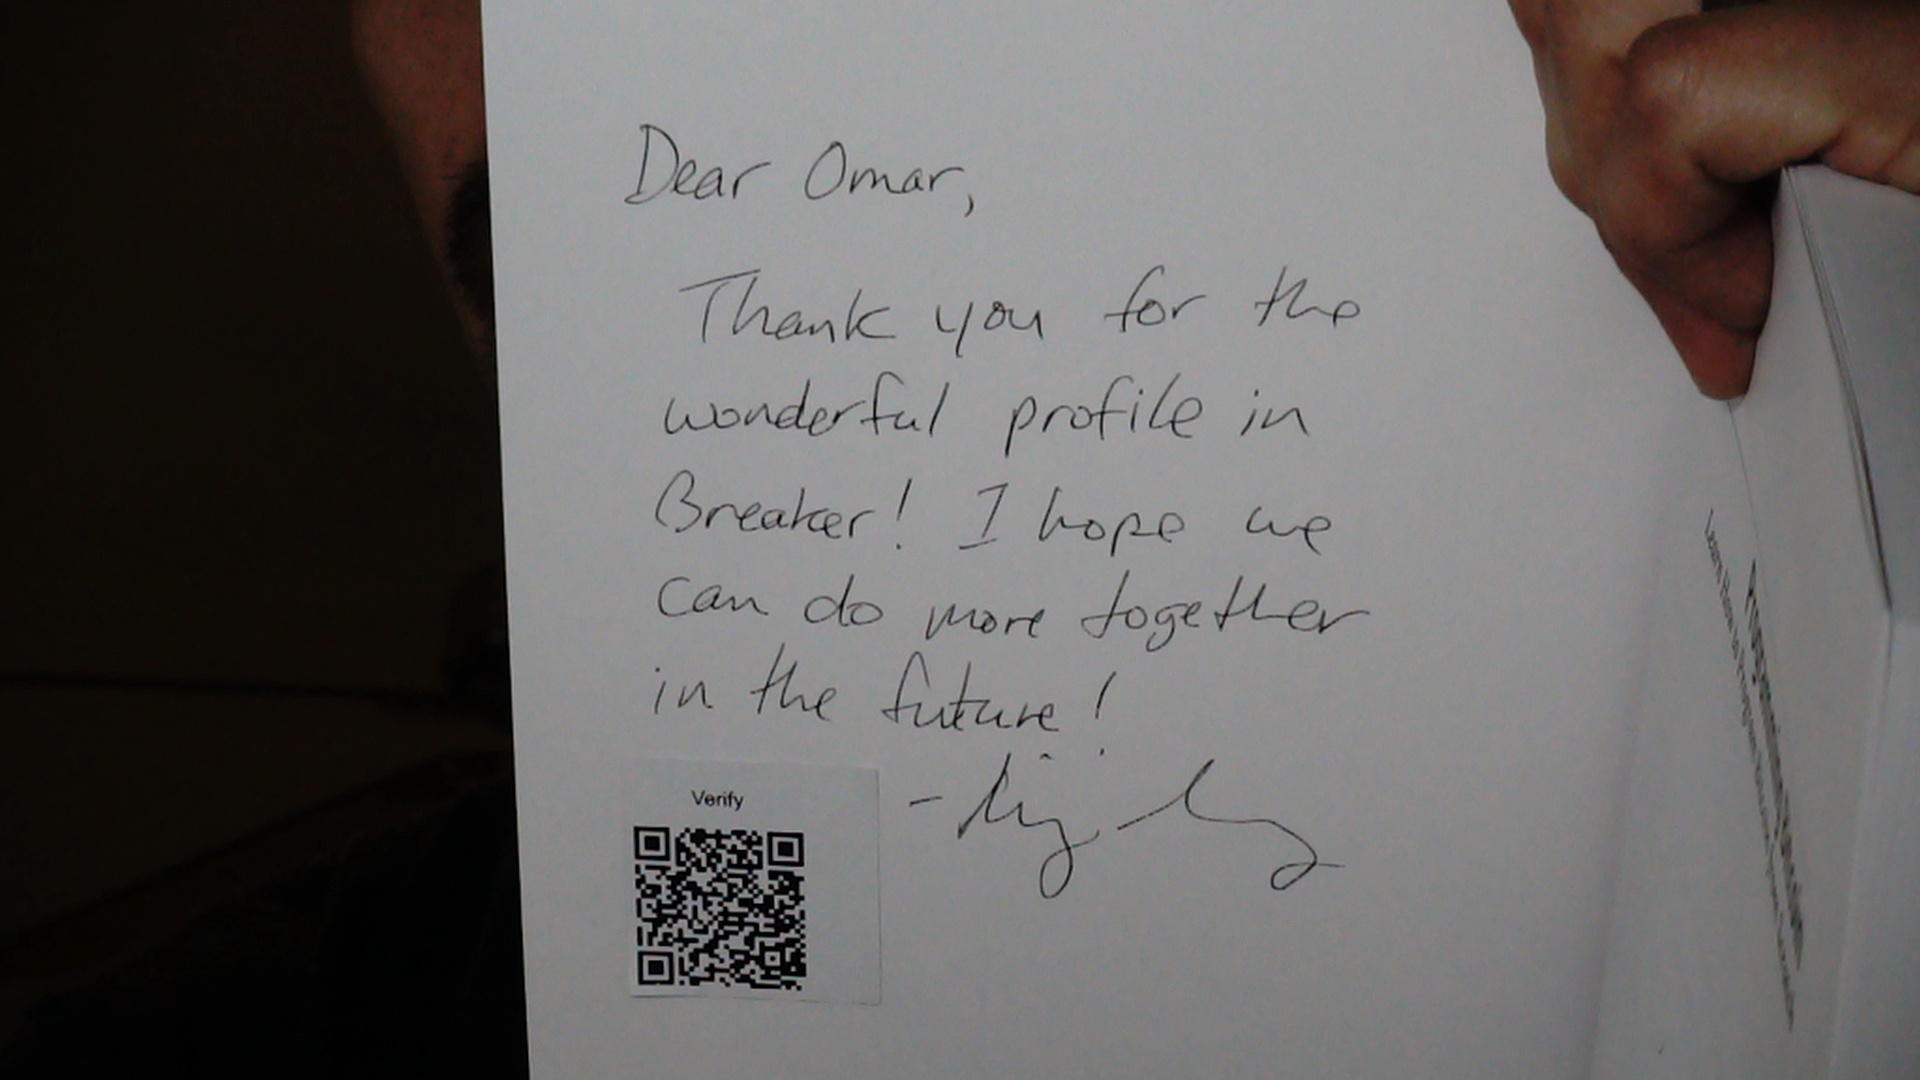 Dear Omar,
Thank you for the
wonderful profile in
Breaker! I hope we
can do more together
in the future!
Verify